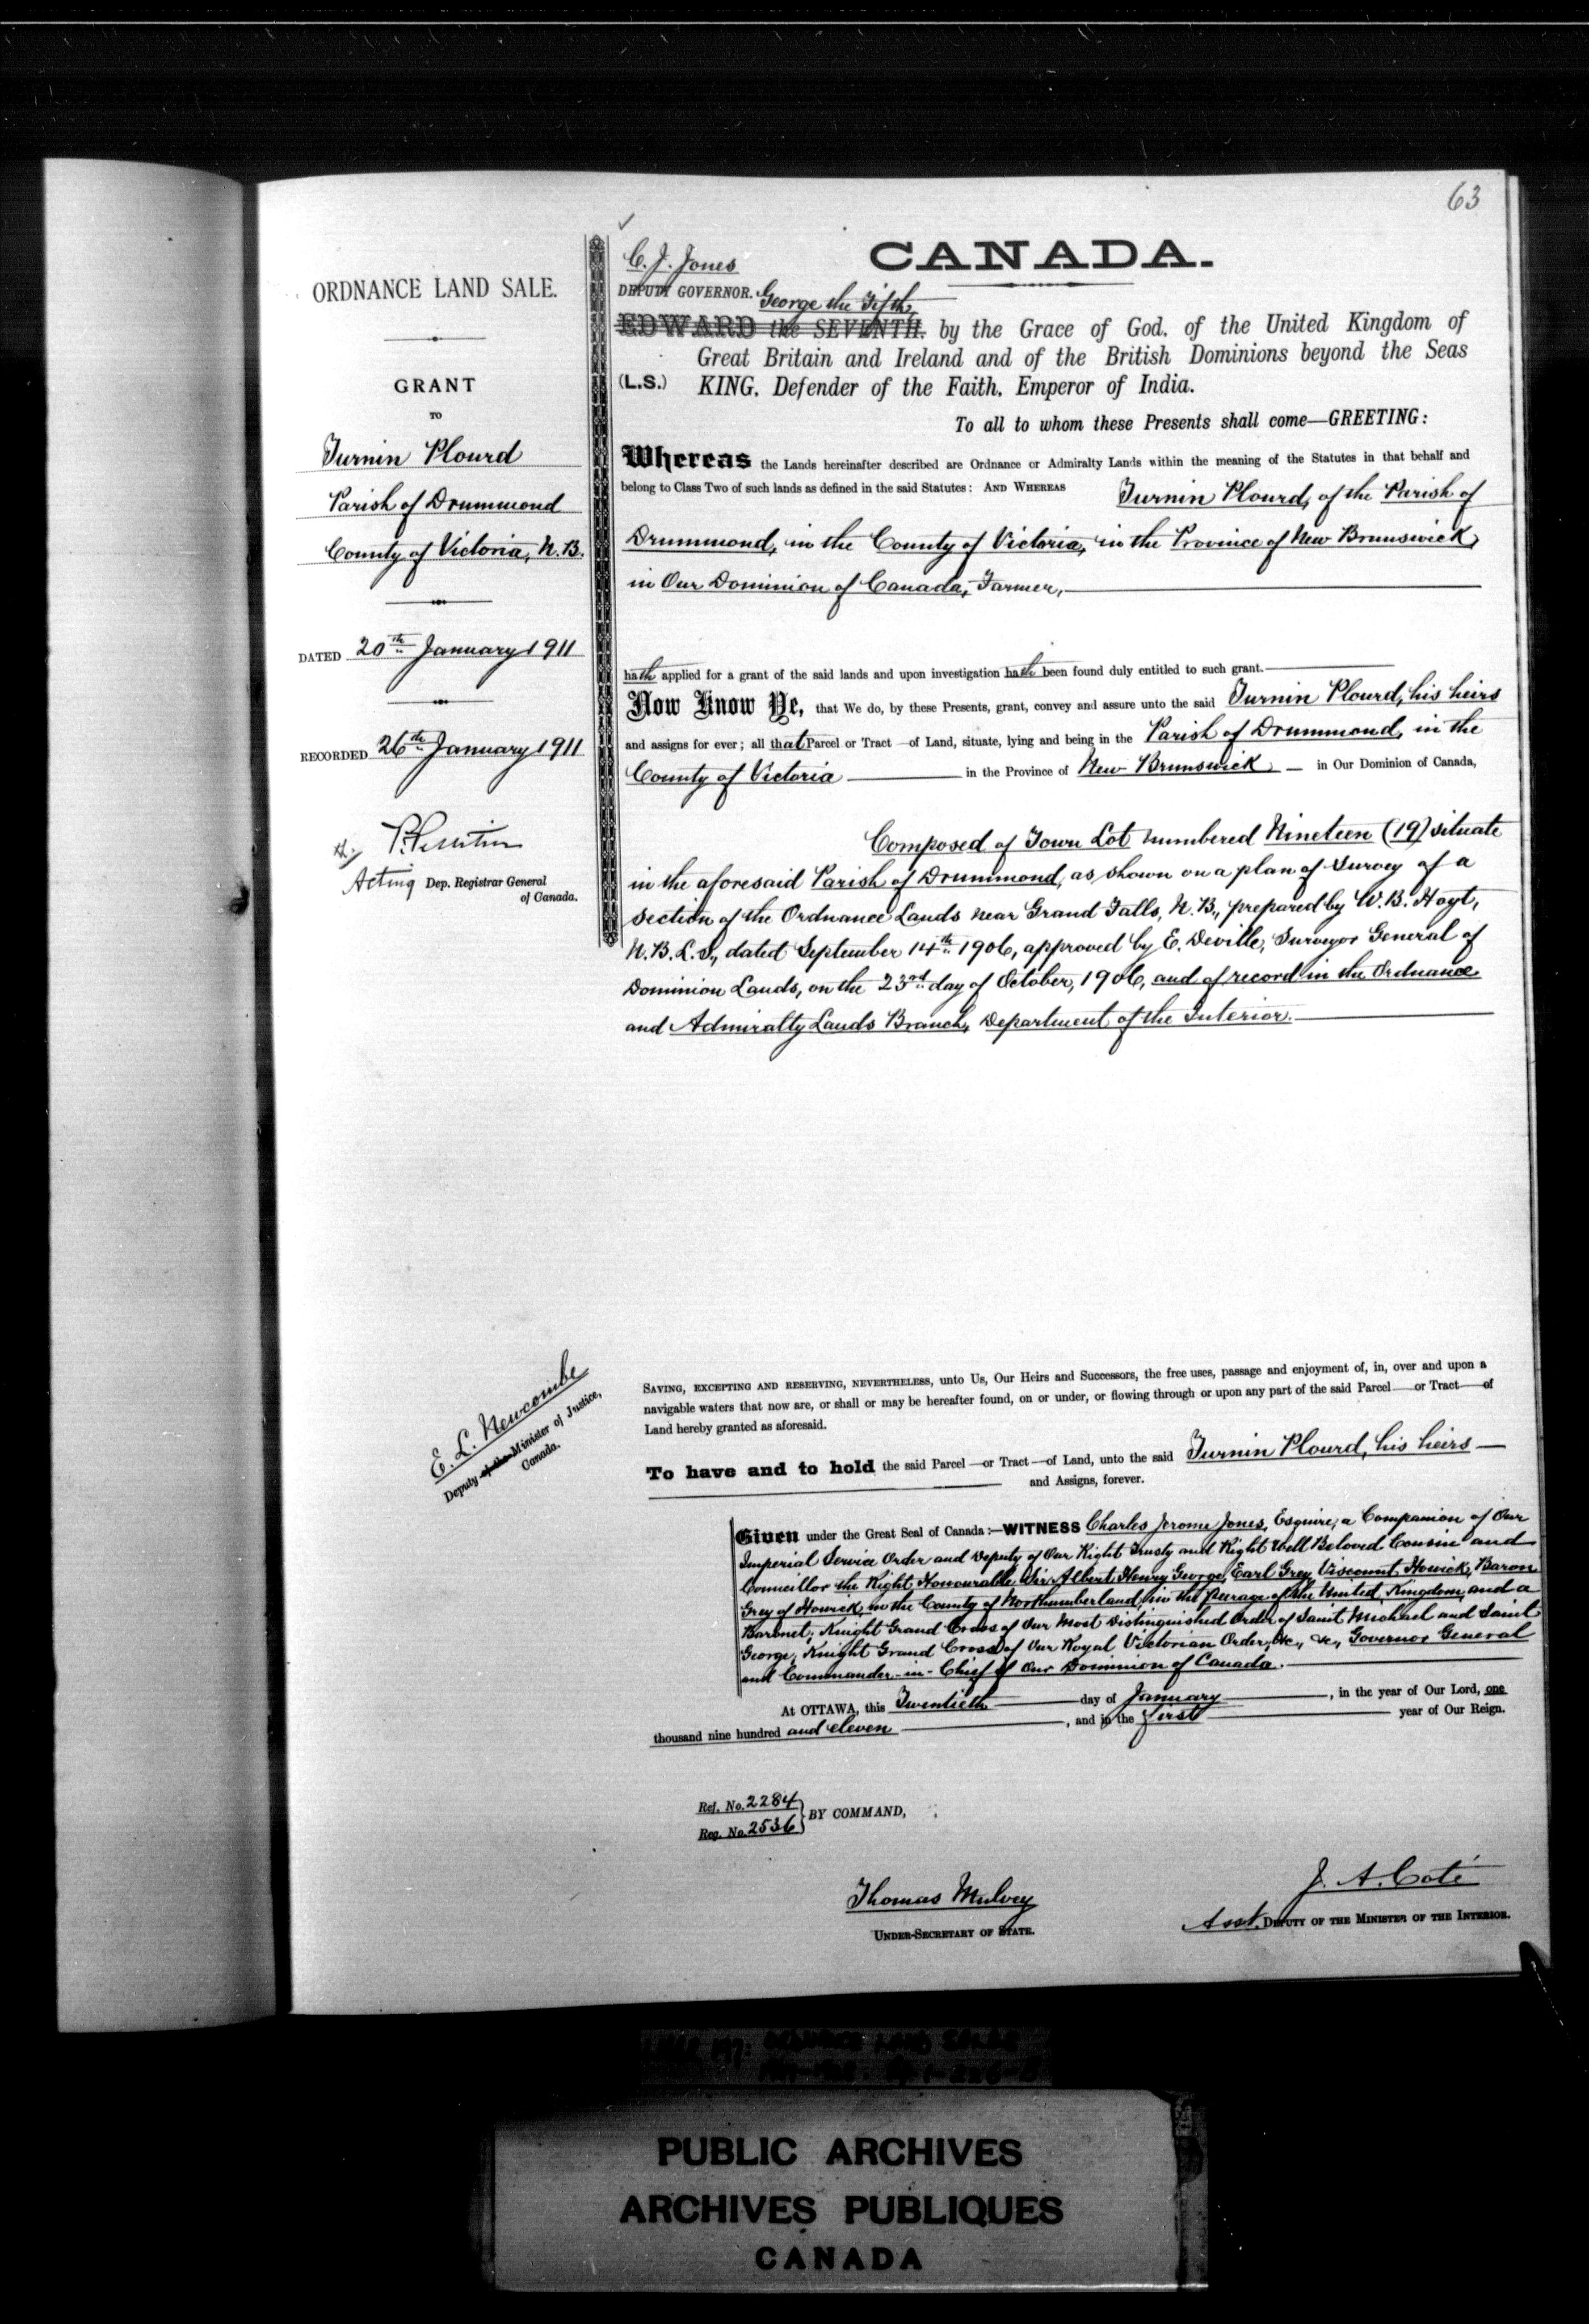 63
ORDNANCE LAND SALE.
GRANT
TO
Turnin Plourd
Parish of Drummond
County of Victoria, N.B.
DATED 20th January 1911
RECORDED 26th January 1911
Acting Dep. Registrar General
of Canada.
C. J. Jones
DEPUTY GOVERNOR.
CANADA.
George the Fifth,
EDWARD the SEVENTH. by the Grace of God, of the United Kingdom of
Great Britain and Ireland and of the British Dominions beyond the Seas
(L.S.) KING, Defender of the Faith, Emperor of India.
To all to whom these Presents shall come—GREETING:
Whereas the Lands hereinafter described are Ordnance or Admiralty Lands within the meaning of the Statutes in that behalf and
belong to Class Two of such lands as defined in the said Statutes: AND WHEREAS Turnin Plourd, of the Parish of
Drummond, in the County of Victoria, in the Province of New Brunswick,
in Our Dominion of Canada, Farmer,
hath applied for a grant of the said lands and upon investigation hath been found duly entitled to such grant.
Now Know Ye, that We do, by these Presents, grant, convey and assure unto the said Turnin Plourd, his heirs
and assigns for ever; all that Parcel or Tract of Land, situate, lying and being in the Parish of Drummond, in the
County of Victoria in the Province of New Brunswick in Our Dominion of Canada,
Composed of Town Lot numbered Nineteen (19) situate
in the aforesaid Parish of Drummond, as shown on a plan of Survey of a
section of the Ordnance Lands near Grand Falls, N.B., prepared by W.B. Hoyt,
N.B.L.S., dated September 14th 1906, approved by E. Deville, Surveyor General of
Dominion Lands, on the 23rd day of October, 1906, and of record in the Ordnance
and Admiralty Lands Branch, Department of the Interior.
E. L. Newcombe
Deputy of the Minister of Justice,
Canada.
SAVING, EXCEPTING AND RESERVING, NEVERTHELESS, unto Us, Our Heirs and Successors, the free uses, passage and enjoyment of, in, over and upon a
navigable waters that now are, or shall or may be hereafter found, on or under, or flowing through or upon any part of the said Parcel or Tract of
Land hereby granted as aforesaid.
To have and to hold the said Parcel or Tract of Land, unto the said Turnin Plourd, his heirs
and Assigns, forever.
Given under the Great Seal of Canada:—WITNESS Charles Jerome Jones, Esquire, a Companion of Our
Imperial Service Order and Deputy of Our Right Trusty and Right Well Beloved Cousin and
Councillor the Right Honourable Sir Albert Henry George, Earl Grey, Viscount Howick, Baron
Grey of Howick, in the County of Northumberland, in the Peerage of the United Kingdom, and a
Baronet; Knight Grand Cross of Our Most Distinguished Order of Saint Michael and Saint
George, Knight Grand Cross of Our Royal Victorian Order, &c., &c., Governor General
and Commander-in-Chief of Our Dominion of Canada.
At OTTAWA, this Twentieth day of January, in the year of Our Lord, one
thousand nine hundred and eleven, and in the first year of Our Reign.
Ref. No. 2284
Reg. No. 2536
BY COMMAND,
Thomas Mulvey
UNDER-SECRETARY OF STATE.
J. A. Coté
Asst. DEPUTY OF THE MINISTER OF THE INTERIOR.
PUBLIC ARCHIVES
ARCHIVES PUBLIQUES
CANADA